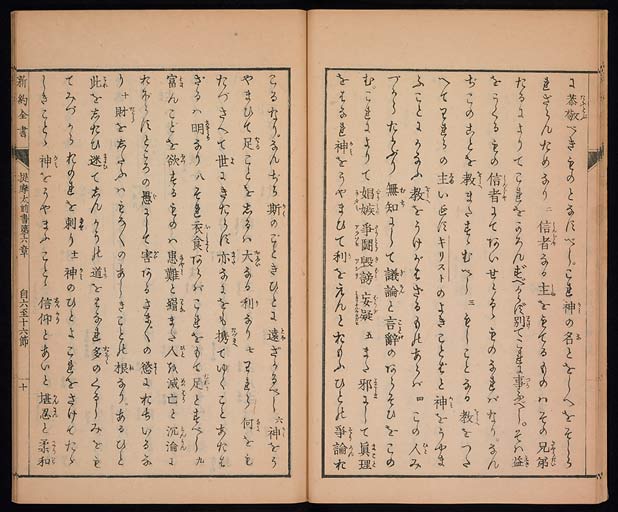 に恭敬べきものとるべし。これ神の名とをしへをそしら
れざらんためなり 二 信者なる主をもてるものハその兄弟
たるによりてこれをかろんずべからず別てこれに事ふべし。そハ益
をうくるもの信者にてあいせらるゝものなればなり。なん
ぢこのことを教またすゝむべし 三 もしことなる教をつた
へてわれらの主いえすキリストのよきことばと神をうやま
ふことにかなふ教をうけがはざるものあらバ 四 この人み
づからたかぶり無知にして議論と言辭のあらそひをこの
むこれによりて娼嫉爭鬪毀謗妄疑 五 また邪にして眞理
をはなれ神をうやまひて利をえんとおもふひとの爭論お
こるなりなんぢ斯のごときひとに遠ざかるべし 六 神をう
やまひて足ことをしるハ大なる利なり 七 われら何を
たづさへて世にきたらず亦なにをも携てゆくことあたハ
ざるハ明なり 八 それ衣食あらバこれをもて足とすべし 九
富んことを欲するものハ患難と羂また人を滅亡と沉淪に
おぼらすところの愚にして害あるさまざまの慾におちいるな
り 十 財をしたふハもろもろのあしきことの根なりあるひと
此をしたひ迷てしんかうの道をはなれ多のくるしみをも
てみづからおのれを刺り 十一 神のひとよこれをさけてたゞ
しきことゝ神をうやまふことゝ信仰とあいと堪忍と柔和
新約全書 提摩太前書第六章 自六至十六節 十